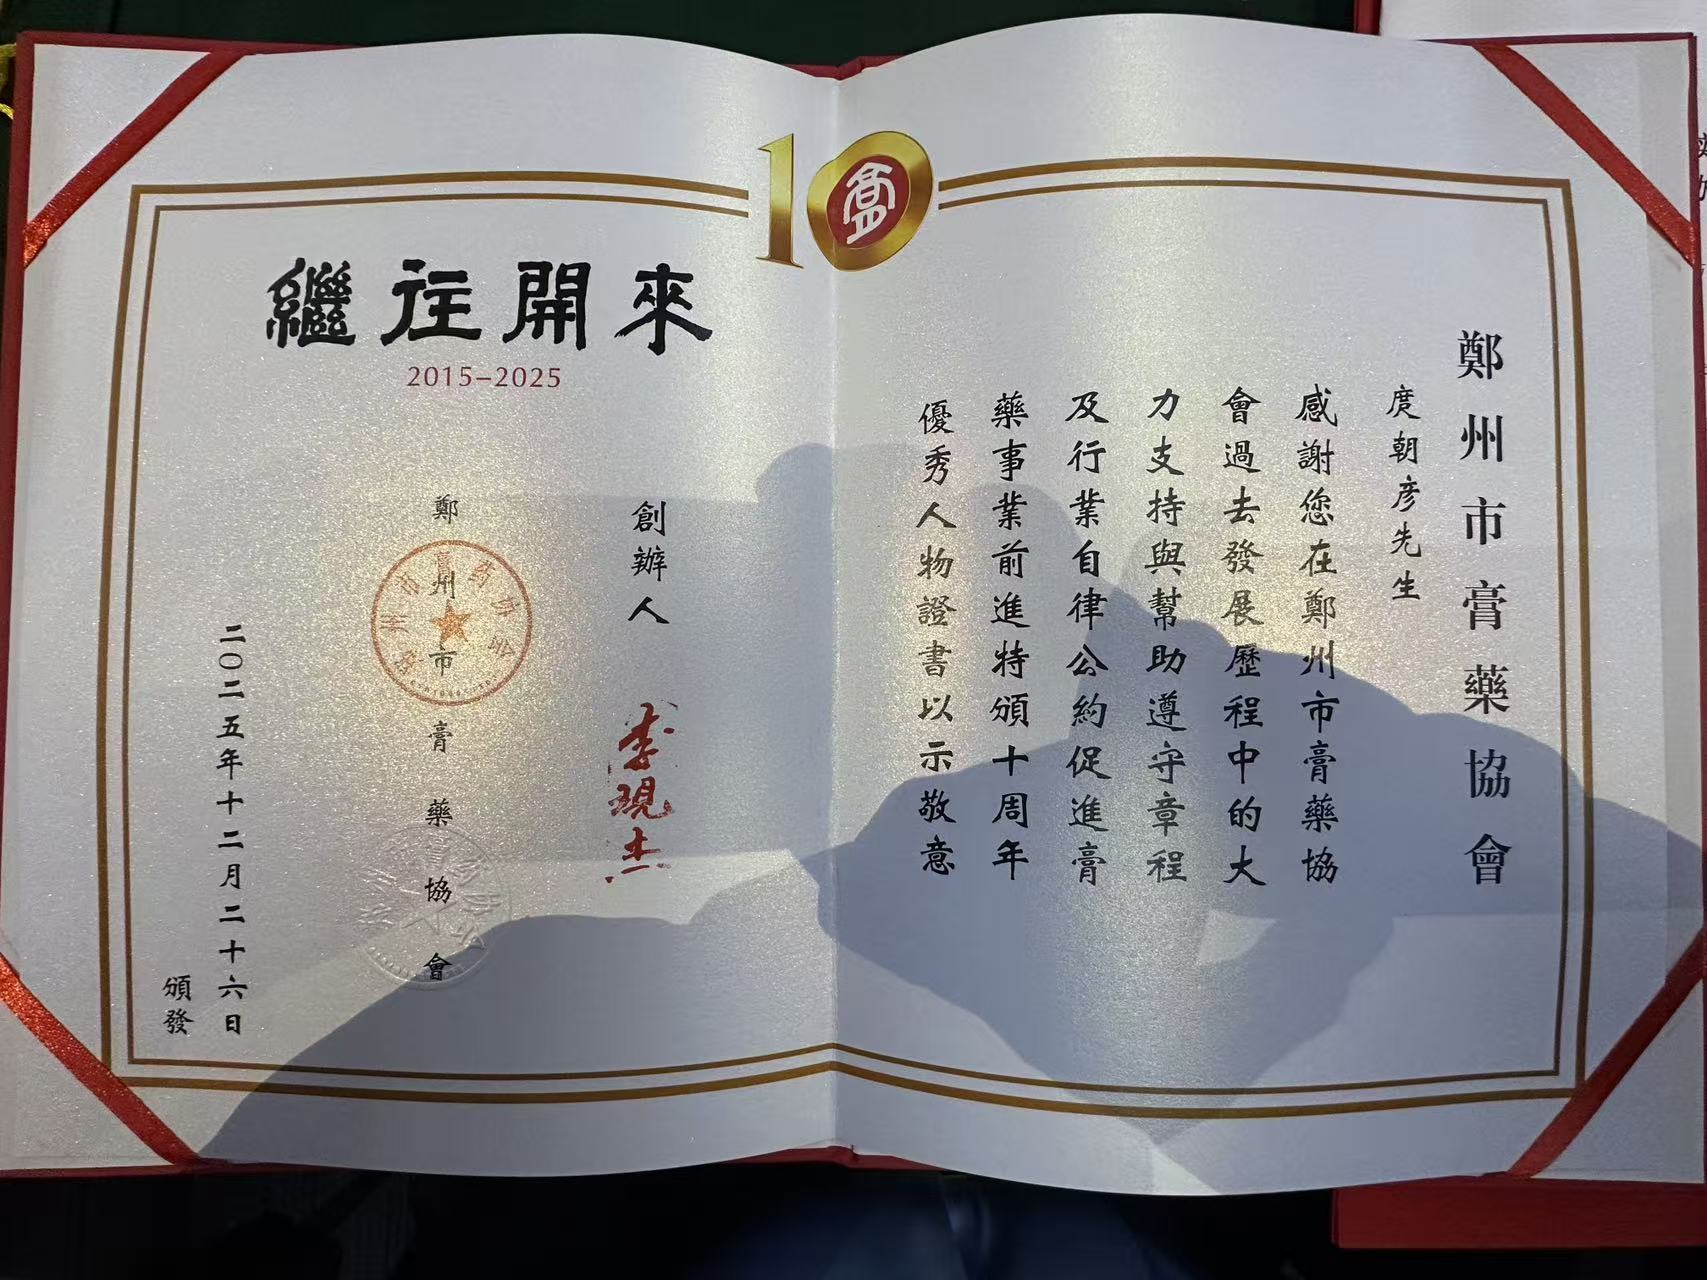 鄭州市膏藥協會
度朝彦先生
感謝您在鄭州市膏藥協
會過去發展歷程中的大
力支持與幫助遵守章程
及行業自律公約促進膏
藥事業前進特頒十周年
優秀人物證書以示敬意
10
繼往開來
2015-2025
創辦人
李現杰
鄭州市膏藥協會
二〇二五年十二月二十六日
頒發